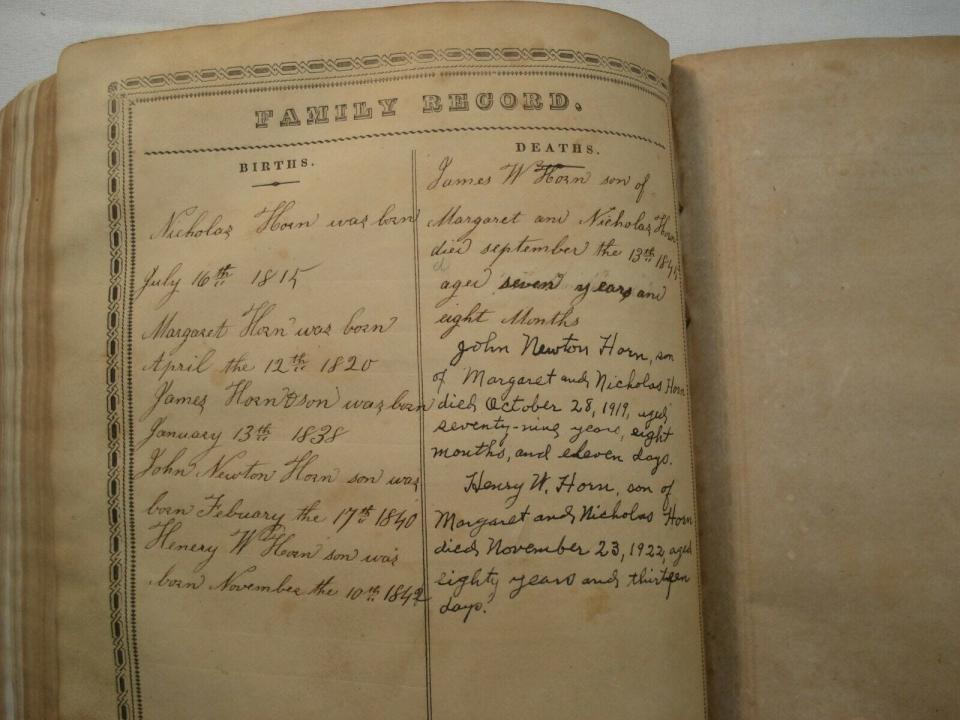 FAMILY RECORD.
BIRTHS.
Nicholas Horn was born
July 16th 1815
Margaret Horn was born
April the 12th 1820
James Horn son was born
January 13th 1838
John Newton Horn son was
born Febuary the 17th 1840
Henery W Horn son was
born November the 10th 1842
DEATHS.
James W Horn son of
Margaret and Nicholas Horn
died september the 13th 1845
aged seven years and
eight Months
John Newton Horn, son
of Margaret and Nicholas Horn
died October 28, 1919, aged
seventy-nine years, eight
months, and eleven days.
Henry W. Horn, son of
Margaret and Nicholas Horn
died November 23, 1922, aged
eighty years and thirteen
days.